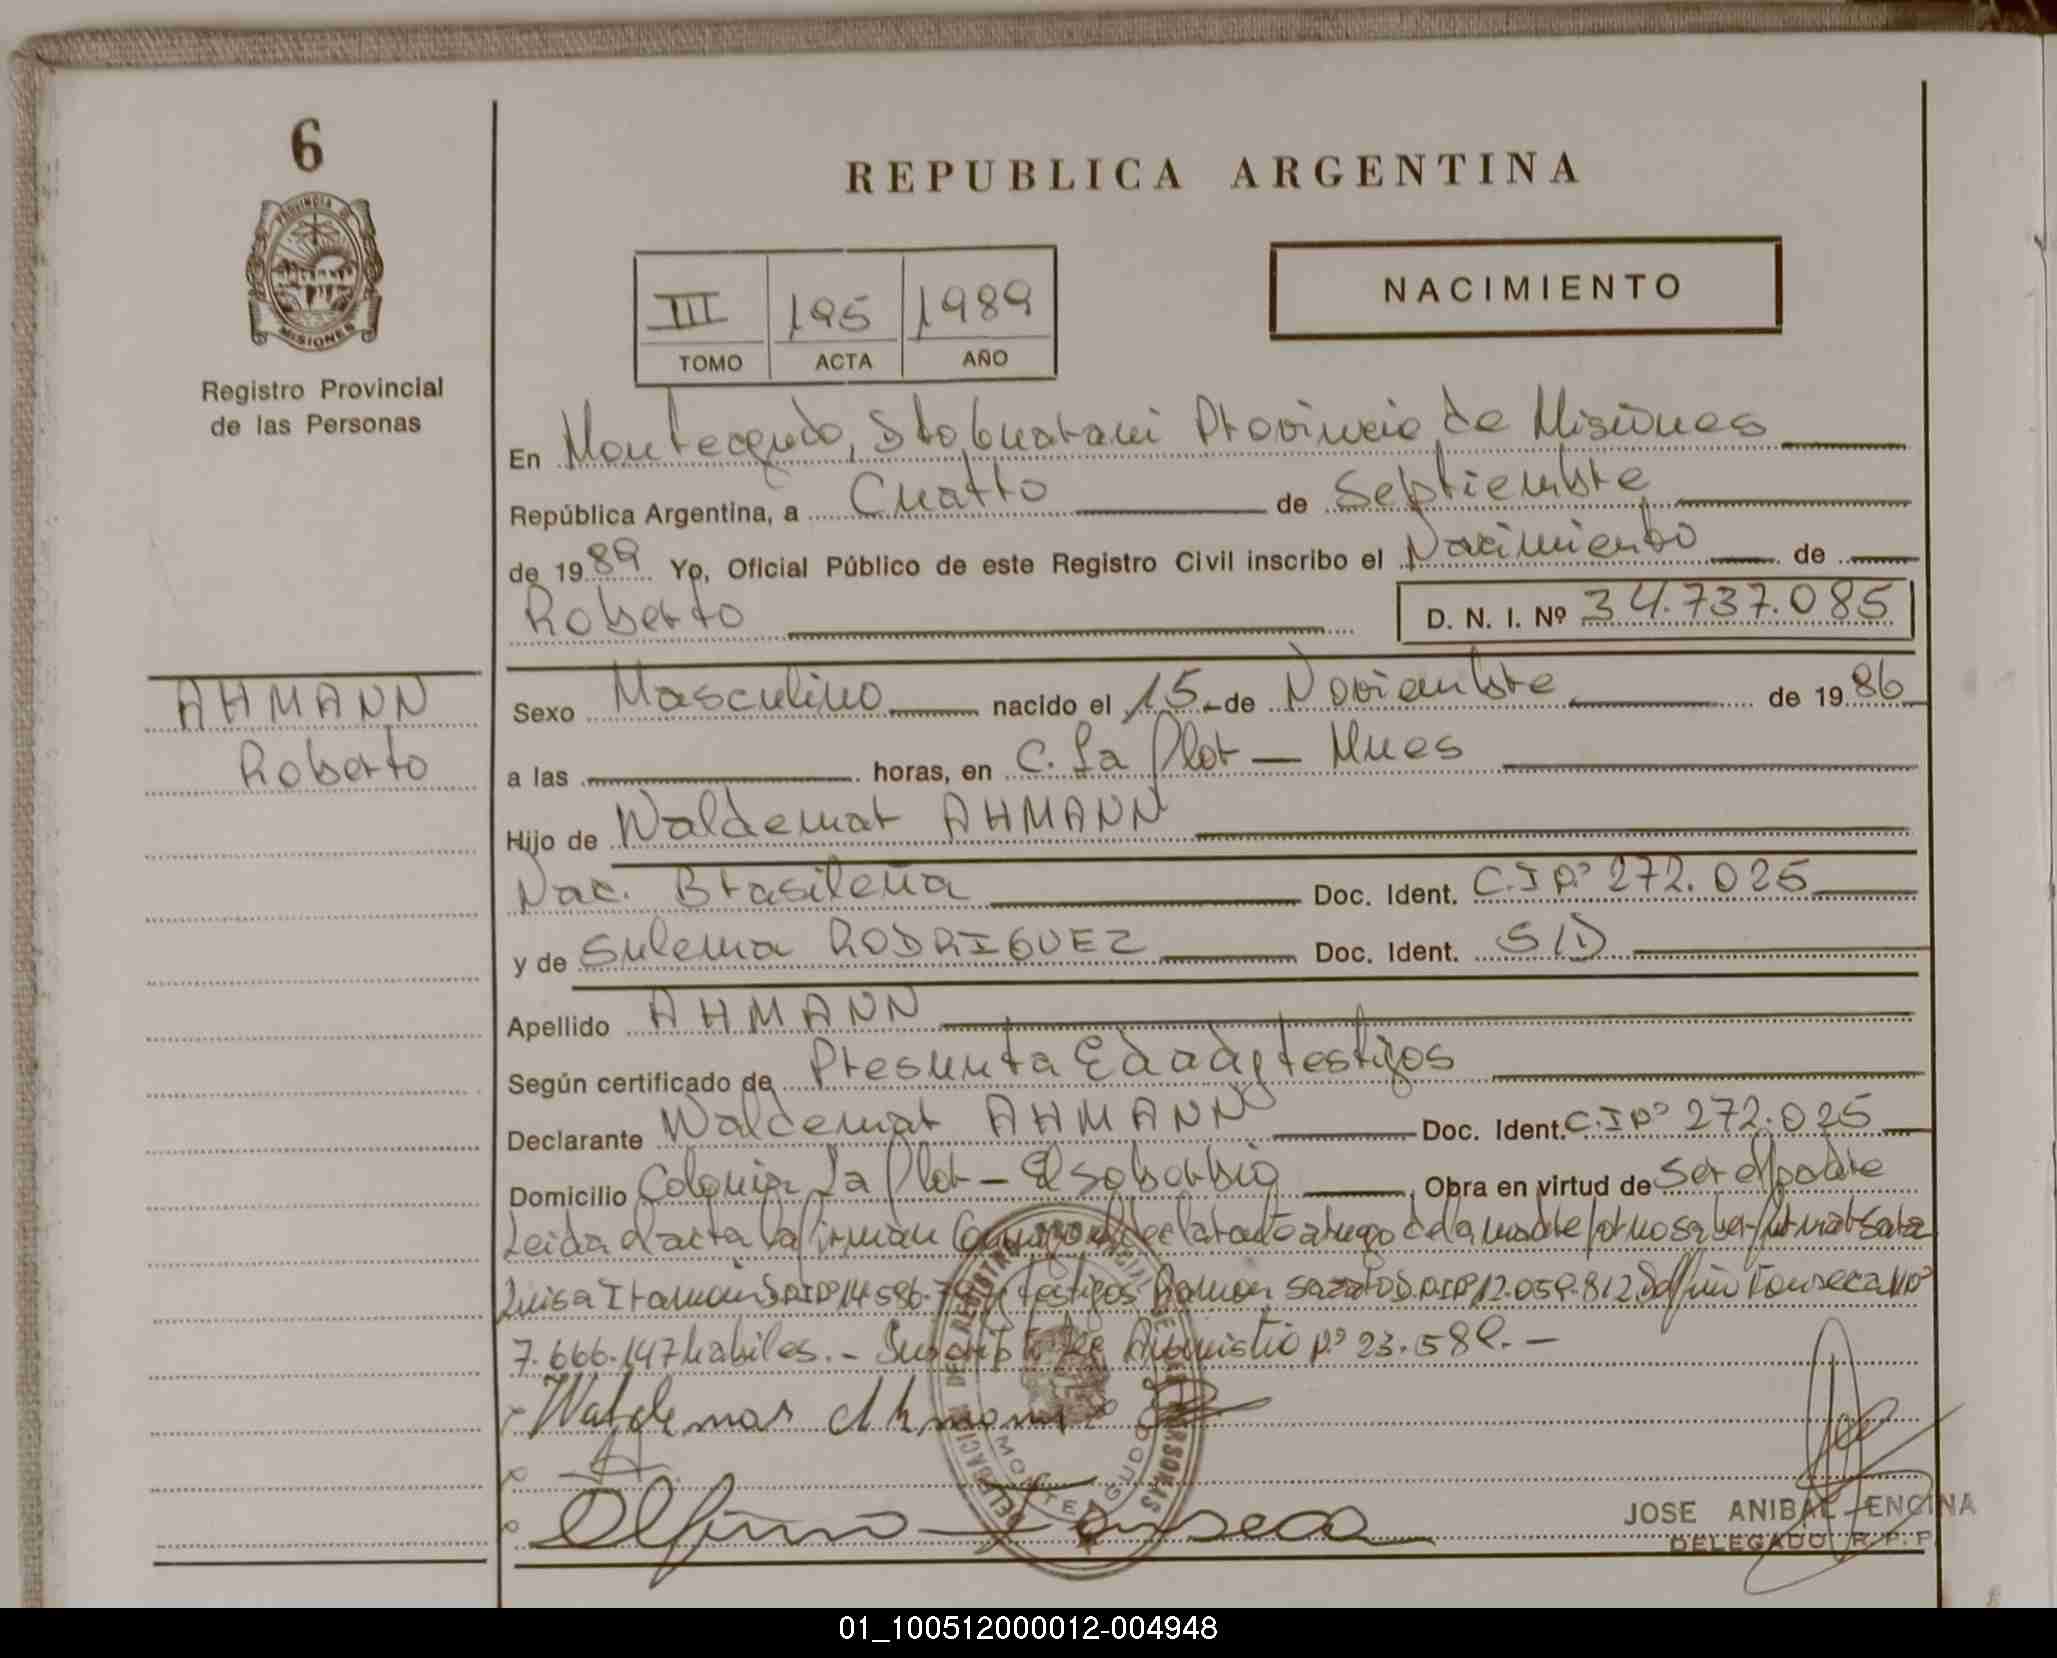 6
PROVINCIA DE
MISIONES
Registro Provincial
de las Personas
REPUBLICA ARGENTINA
III 195 1989
TOMO ACTA AÑO
NACIMIENTO
En Monteagudo, Dto Guarani Provincia de Misiones
República Argentina, a Cuatro de Septiembre
de 1989 Yo, Oficial Público de este Registro Civil inscribo el Nacimiento de
Roberto D. N. I. Nº 34.737.085
AHMANN
Roberto
Sexo Masculino nacido el 15 de Noviembre de 1986
a las horas, en C. La Flor - Mnes
Hijo de Waldemar AHMANN
Nac. Brasileña Doc. Ident. C.I Nº 272.025
y de Sulema RODRIGUEZ Doc. Ident. S/D
Apellido AHMANN
Según certificado de Presunta Edad y testigos
Declarante Waldemar AHMANN Doc. Ident. C.I Nº 272.025
Domicilio Colonia La Flor - El soberbio Obra en virtud de Ser el padre
Leida el acta la firman Conmigo el declarante a ruego de la madre por no saber firmar Sara
Luisa Nº 14.596. testigos Ramon Nº 12.059.812 Delfino Fonseca Nº
7.666.147 habiles. - Nº 23.589. -
Waldemar Ahmann
Delfino Fonseca
DELEGACION DE REGISTRO PROVINCIAL DE LAS PERSONAS
MONTEAGUDO
JOSE ANIBAL ENCINA
DELEGADO R. P. P.
01_100512000012-004948